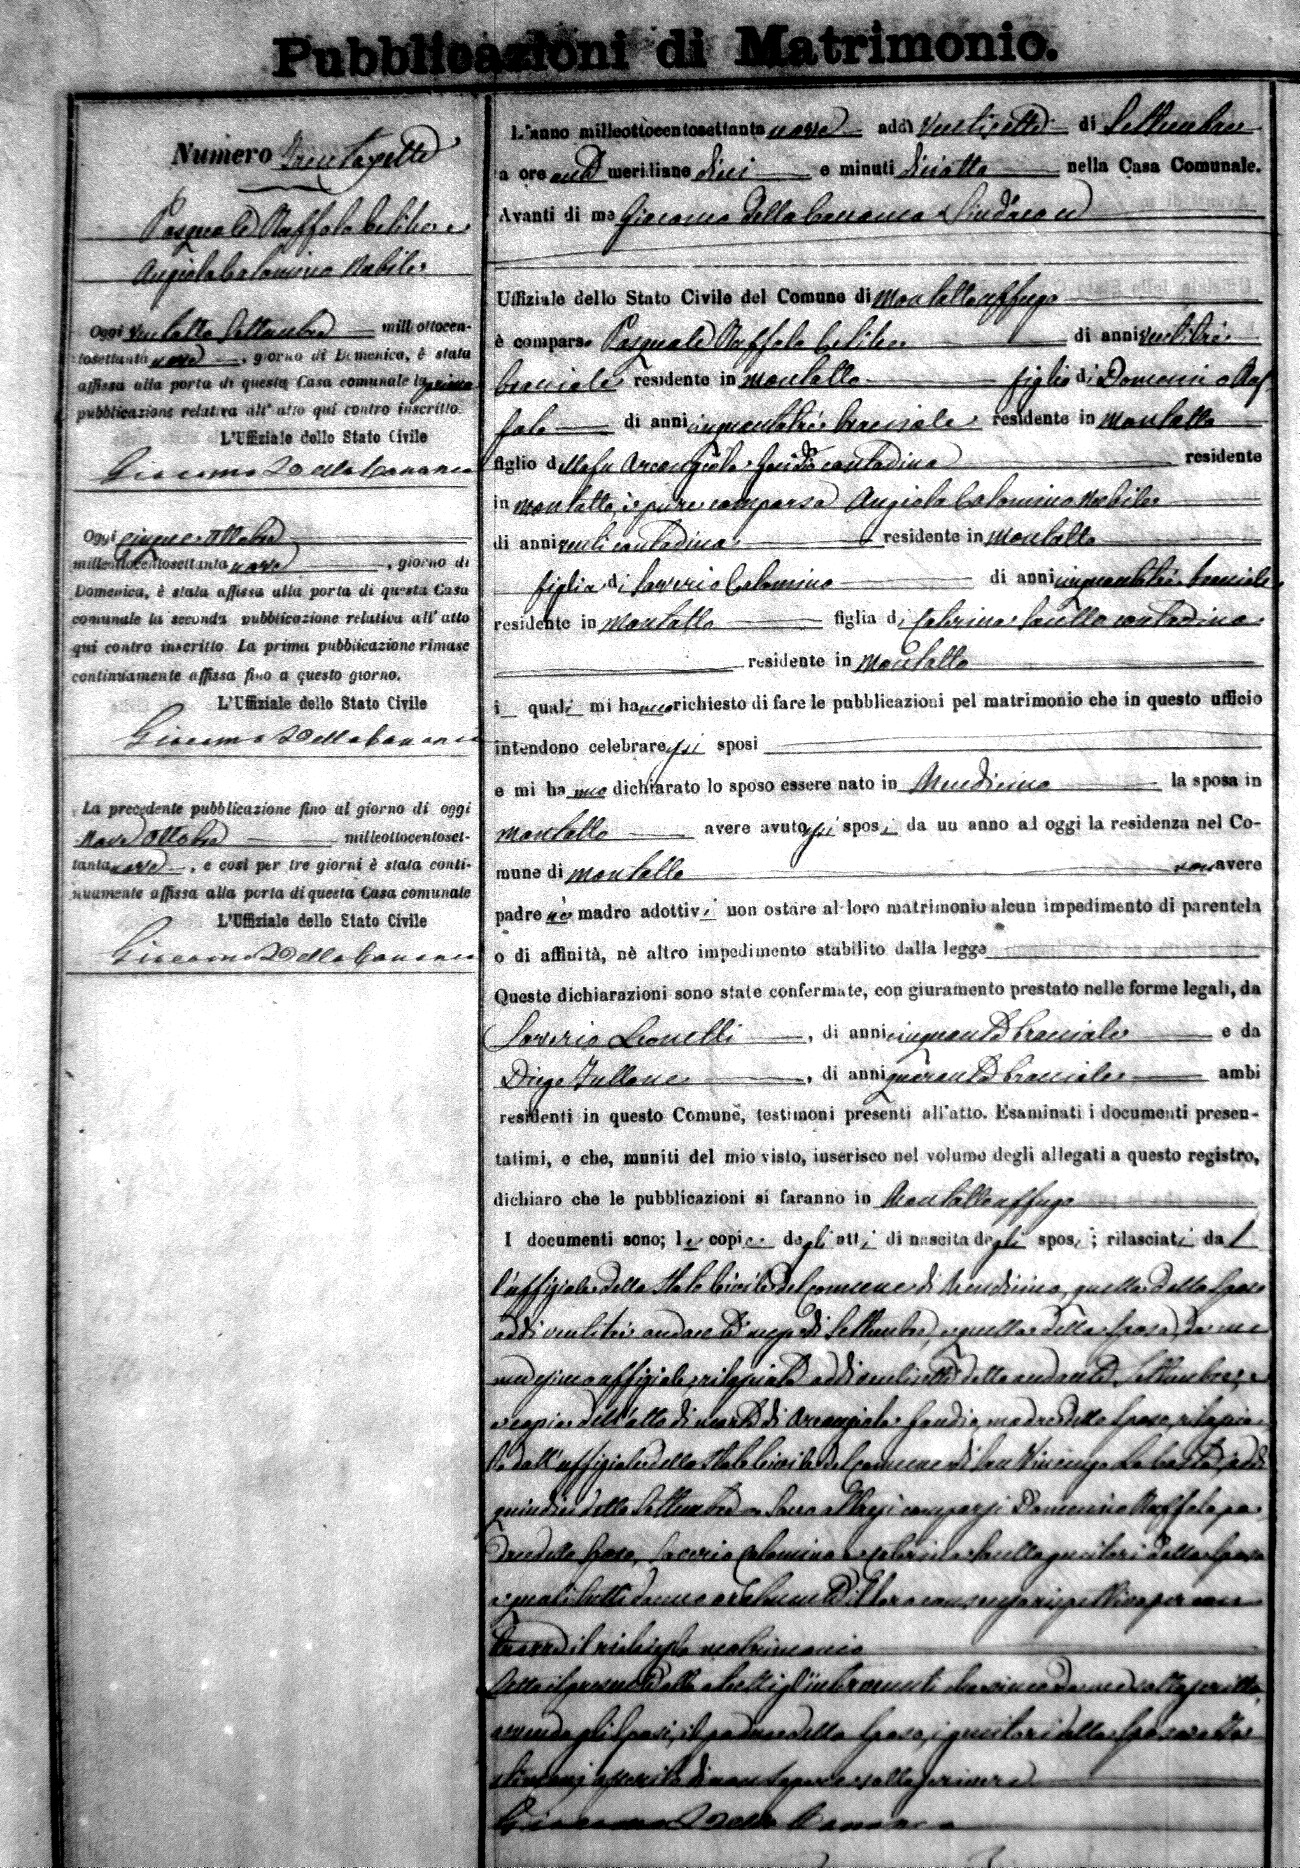 Pubblicazioni di Matrimonio.
Numero Trentasette
Pasquale Raffale Celibe e
Angiola Calomino Nubile
Oggi ventotto Settembre milleottocen-
tosettanta nove, giorno di Domenica, è stata
affissa alla porta di questa Casa comunale la prima
pubblicazione relativa all' atto qui contro inscritto.
L'Uffiziale dello Stato Civile
Giacomo Della Cananea
Oggi cinque Ottobre
milleottocentosettanta nove, giorno di
Domenica, è stata affissa alla porta di questa Casa
comunale la seconda pubblicazione relativa all' atto
qui contro inscritto. La prima pubblicazione rimase
continuamente affissa fino a questo giorno.
L'Uffiziale dello Stato Civile
Giacomo Della Cananea
La precedente pubblicazione fino al giorno di oggi
Nove Ottobre milleottocentoset-
tanta nove, e così per tre giorni è stata conti-
nuamente affissa alla porta di questa Casa comunale
L'Uffiziale dello Stato Civile
Giacomo Della Cananea
L'anno milleottocentosettanta nove addì ventisette di Settembre
a ore anti meridiane dieci e minuti diciotto nella Casa Comunale.
Avanti di me Giacomo Della Cananea Sindaco ed
Uffiziale dello Stato Civile del Comune di Montaltouffugo
è comparso Pasquale Raffale Celibe di anni ventitre
bracciale residente in Montalto figlio di Domenico Raf
fale di anni cinquantatrè bracciale residente in Montalto
figlio della fu Arcangiola contadina residente
in Montalto, è pure comparsa Angiola Calomino Nubile
di anni venti contadina residente in Montalto
figlia di Saverio Calomino di anni cinquantatrè bracciale
residente in Montalto figlia di Caterina contadina
residente in Montalto
i quali mi hanno richiesto di fare le pubblicazioni pel matrimonio che in questo ufficio
intendono celebrare essi sposi
e mi hanno dichiarato lo sposo essere nato in Mendicino la sposa in
Montalto avere avuto essi sposi da un anno ad oggi la residenza nel Co-
mune di Montalto non avere
padre nè madre adottivi non ostare al loro matrimonio alcun impedimento di parentela
o di affinità, nè altro impedimento stabilito dalla legge
Queste dichiarazioni sono state confermate, con giuramento prestato nelle forme legali, da
Saverio Leonetti, di anni cinquanta bracciale e da
Diego Tullone, di anni quaranta bracciale ambi
residenti in questo Comune, testimoni presenti all'atto. Esaminati i documenti presen-
tatimi, e che, muniti del mio visto, inserisco nel volume degli allegati a questo registro,
dichiaro che le pubblicazioni si faranno in Montaltouffugo
I documenti sono; le copie degli atti di nascita degli sposi; rilasciati dal
l'uffiziale dello Stato Civile del Comune di Mendicino, quella dello sposo
addì ventitrè andante mese di Settembre, e quella della sposa, da me
medesimo uffiziale, rilasciata addì ventisette detto andante Settembre, e
copia dell'atto di morte di Arcangiola madre dello sposo, rilascia
to dall'uffiziale dello Stato Civile del Comune di San Vincenzo La Costa, addì
quindici detto Settembre. Sono altresì comparsi Domenico Raffale pa
dre dello sposo, Saverio Calomino e Caterina genitori della sposa
i quali tutti danno oralmente il loro consenso rispettivo per con
trarre il richiesto matrimonio
Letto il presente atto a tutti gl'intervenuti che sono da me sottoscritto
avendo gli sposi, il padre dello sposo, i genitori della sposa e i te
stimoni asserito di non sapere sottoscrivere
Giacomo Della Cananea